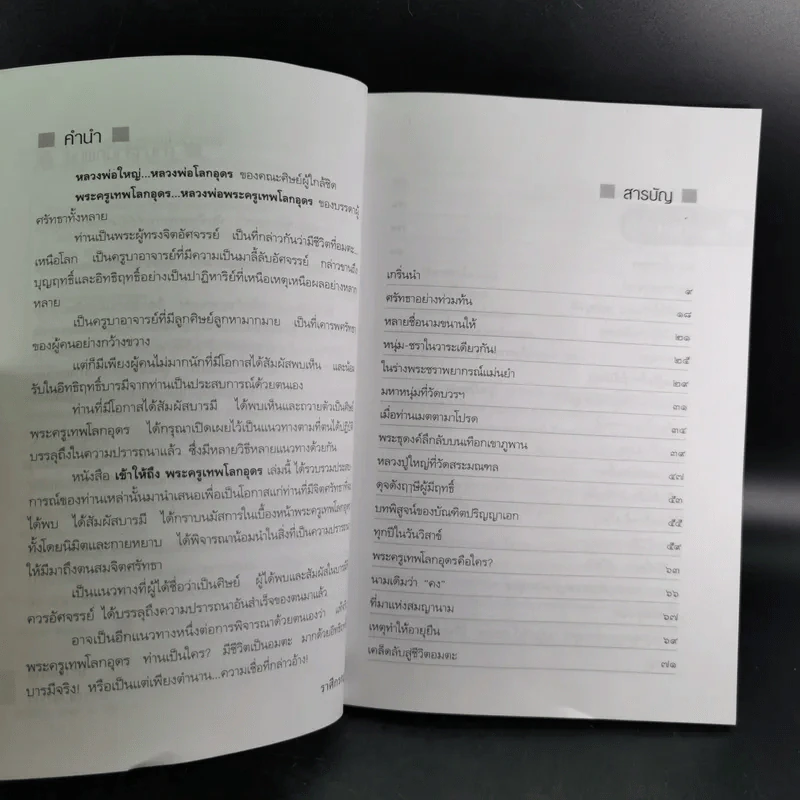 คำนำ
หลวงพ่อใหญ่...หลวงพ่อโลกอุดร ของคณะศิษย์ผู้ใกล้ชิด
พระครูเทพโลกอุดร...หลวงพ่อพระครูเทพโลกอุดร ของบรรดาผู้
ศรัทธาทั้งหลาย
ท่านเป็นพระผู้ทรงจิตอัศจรรย์ เป็นที่กล่าวกันว่ามีชีวิตที่อมตะ...
เหนือโลก เป็นครูบาอาจารย์ที่มีความเป็นมาลี้ลับอัศจรรย์ กล่าวขานถึง
บุญฤทธิ์และอิทธิฤทธิ์อย่างเป็นปาฏิหาริย์ที่เหนือเหตุเหนือผลอย่างหลาก
หลาย
เป็นครูบาอาจารย์ที่มีลูกศิษย์ลูกหามากมาย เป็นที่เคารพศรัทธา
ของผู้คนอย่างกว้างขวาง
แต่ก็มีเพียงผู้คนไม่มากนักที่มีโอกาสได้สัมผัสพบเห็น และน้อม
รับในอิทธิฤทธิ์บารมีจากท่านเป็นประสบการณ์ด้วยตนเอง
ท่านที่มีโอกาสได้สัมผัสบารมี ได้พบเห็นและถวายตัวเป็นศิษย์
พระครูเทพโลกอุดร ได้กรุณาเปิดเผยไว้เป็นแนวทางตามที่ตนได้ปฏิบัติ
บรรลุถึงในความปรารถนาแล้ว ซึ่งมีหลายวิธีหลายแนวทางด้วยกัน
หนังสือ เข้าให้ถึง พระครูเทพโลกอุดร เล่มนี้ ได้รวบรวมประสบ
การณ์ของท่านเหล่านั้นมานำเสนอเพื่อเป็นโอกาสแก่ท่านที่มีจิตศรัทธาที่จะ
ได้พบ ได้สัมผัสบารมี ได้กราบนมัสการในเบื้องหน้าพระครูเทพโลกอุดร
ทั้งโดยนิมิตและกายหยาบ ได้พิจารณาน้อมนำในสิ่งที่เป็นความปรารถนา
ให้มีมาถึงตนสมจิตศรัทธา
เป็นแนวทางที่ผู้ได้ชื่อว่าเป็นศิษย์ ผู้ได้พบและสัมผัสในบารมี
ควรอัศจรรย์ ได้บรรลุถึงความปรารถนาอันสำเร็จของตนมาแล้ว
อาจเป็นอีกแนวทางหนึ่งต่อการพิจารณาด้วยตนเองว่า
พระครูเทพโลกอุดร ท่านเป็นใคร? มีชีวิตเป็นอมตะ มากด้วยอิทธิ
บารมีจริง! หรือเป็นแต่เพียงตำนาน...ความเชื่อที่กล่าวอ้าง!
สารบัญ
เกริ่นนำ ๙
ศรัทธาอย่างท่วมท้น ๑๘
หลายชื่อนามขนานให้ ๒๑
หนุ่ม-ชราในวาระเดียวกัน! ๒๕
ในร่างพระชราพยากรณ์แม่นยำ ๒๙
มหาหนุ่มที่วัดบวรฯ ๓๑
เมื่อท่านเมตตามาโปรด ๓๔
พระธุดงค์ลึกลับบนเทือกเขาภูพาน ๓๙
หลวงปู่ใหญ่ที่วัดสระมณฑล ๔๗
ดุจดังฤๅษีผู้มีฤทธิ์ ๕๓
บทพิสูจน์ของบัณฑิตปริญญาเอก ๕๕
ทุกปีในวันวิสาข์ ๕๙
พระครูเทพโลกอุดรคือใคร? ๖๓
นามเดิมว่า "คง" ๖๖
ที่มาแห่งสมญานาม ๖๗
เหตุทำให้อายุยืน ๖๙
เคล็ดลับสู่ชีวิตอมตะ ๗๑